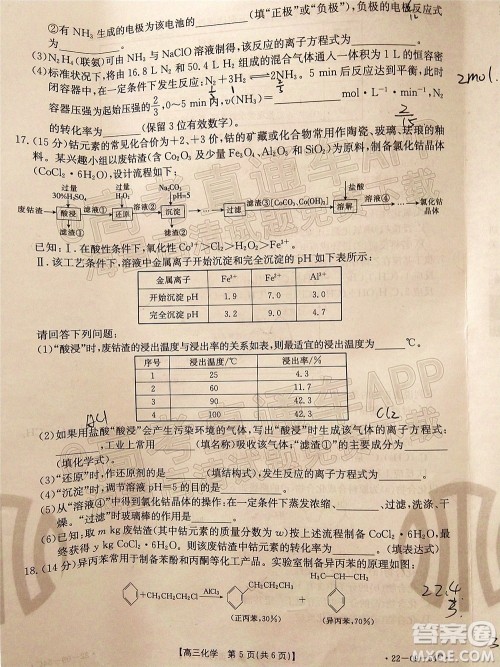 ②有 NH₃ 生成的电极为该电池的______(填“正极”或“负极”),负极的电极反应式
为______。
(3)N₂H₄(联氨)可由 NH₃ 与 NaClO 溶液制得,该反应的离子方程式为______。
(4)标准状况下,将由 16.8 L N₂ 和 50.4 L H₂ 组成的混合气体通入一体积为 1 L 的恒
密闭容器中,在一定条件下发生反应:N₂+3H₂⇌2NH₃。5 min 后反应达到平衡,此时
容器压强为起始压强的
,0~5 min 内,v(NH₃)=______mol·L⁻¹·min⁻¹,N₂
的转化率为______(保留 3 位有效数字)。
2mol.
2/15
17.(15 分)钴元素的常见化合价为+2、+3 价,钴的矿藏或化合物常用作陶瓷、玻璃、珐琅的釉
料。某兴趣小组以废钴渣(含 Co₂O₃ 及少量 Fe₃O₄、Al₂O₃ 和 SiO₂)为原料,制备氯化钴晶体
(CoCl₂·6H₂O),设计流程如图:
过量 30%H₂SO₄
过量 H₂O₂
Na₂CO₃ pH=5
废钴渣→酸浸→滤液①→还原→溶液②→沉淀→过滤→滤渣③[CoCO₃、Co(OH)₂]→溶解→溶液④→氯化钴晶体
滤渣①
滤渣②
已知:Ⅰ.在酸性条件下,氧化性 Co³⁺>Cl₂>H₂O₂>Fe³⁺。
Ⅱ.该工艺条件下,溶液中金属离子开始沉淀和完全沉淀的 pH 如下表所示:
金属离子 Fe³⁺ Fe²⁺ Al³⁺
开始沉淀 pH 1.9 7.0 3.0
完全沉淀 pH 3.2 9.0 4.7
请回答下列问题:
(1)“酸浸”时,废钴渣的浸出温度与浸出率的关系如表,则最适宜的浸出温度为______。
序号 浸出温度/℃ 浸出率/%
1 25 4.3
2 60 11.7
3 90 42.3
4 100 42.3
Cl₂
(2)如果用盐酸“酸浸”会产生污染环境的气体,写出“酸浸”时生成该气体的离子方程式:
______,工业上常用______(填名称)吸收该气体,“滤渣①”的主要成分为______
(填化学式)。
(3)“还原”时,作还原剂的是______(填结构式),发生反应的离子方程式为______。
(4)“沉淀”时,调节溶液 pH=5 的目的是______。
(5)从“溶液④”中得到氯化钴晶体的操作:在一定条件下蒸发浓缩、______、过滤,洗涤、干
燥。“过滤”时玻璃棒的作用为______。
(6)已知:取 m kg 废钴渣(其中钴元素的质量分数为 w)按上述流程制备 CoCl₂·6H₂O,最
终获得 y kg CoCl₂·6H₂O。则该废钴渣中钴元素的转化率为______(填表达式)
18.(14 分)异丙苯常用于制备苯酚和丙酮等化工产品。实验室制备异丙苯的原理如下:
+CH₃CH₂CH₂Cl
AlCl₃
CH₂CH₂CH₃
(正丙苯,30%)
H₃C—CH—CH₃
(异丙苯,70%)
22.4
【高三化学 第 5 页(共 6 页)】